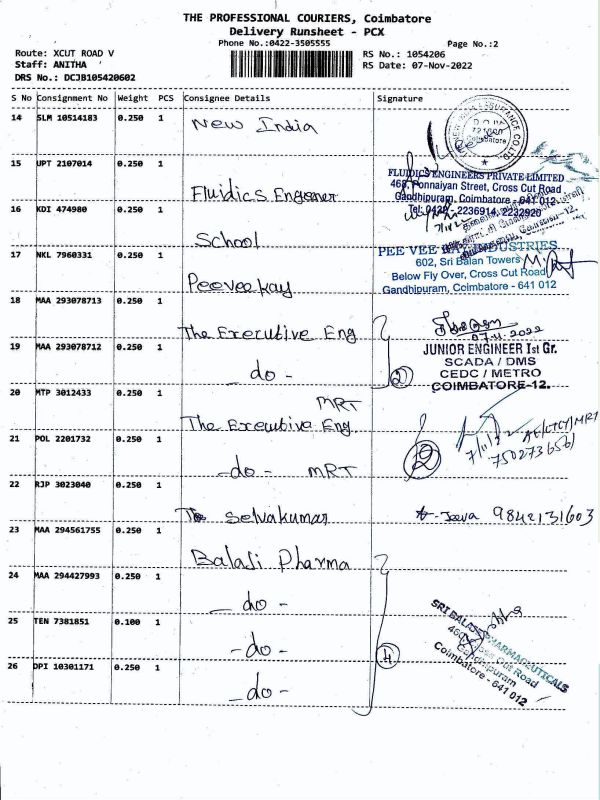 THE PROFESSIONAL COURIERS, Coimbatore
Delivery Runsheet - PCX
Phone No.:0422-3505555
Page No.:2
Route: XCUT ROAD V
RS No.: 1054206
Staff: ANITHA
RS Date: 07-Nov-2022
DRS No.: DCJB105420602
S No Consignment No Weight PCS Consignee Details Signature
14 SLM 10514183 0.250 1 New India
15 UPT 2107014 0.250 1 Fluidics Engeneer
FLUIDICS ENGINEERS PRIVATE LIMITED
468, Ponnaiyan Street, Cross Cut Road
Gandhipuram, Coimbatore - 641 012
2236914, 2232920
16 KDI 474980 0.250 1 School
17 NKL 7960331 0.250 1 Peeveekay
PEE VEE INDUSTRIES
602, Sri Balan Towers
Below Fly Over, Cross Cut Road
Gandhipuram, Coimbatore - 641 012
18 MAA 293078713 0.250 1 The Executive Eng
07.11.2022
19 MAA 293078712 0.250 1 - do -
2
JUNIOR ENGINEER Ist Gr.
SCADA / DMS
CEDC / METRO
COIMBATORE-12.
20 MTP 3012433 0.250 1 MRT
The Executive Eng
21 POL 2201732 0.250 1 - do - MRT
2
22 RJP 3023040 0.250 1 Selvakumar
Jeeva 9842131603
23 MAA 294561755 0.250 1 Balaji Pharma
24 MAA 294427993 0.250 1 - do -
25 TEN 7381851 0.100 1 - do -
4
26 DPI 10301171 0.250 1 - do -
SRI BALAJI PHARMACEUTICALS
Cut Road
Gandhipuram
Coimbatore - 641 012